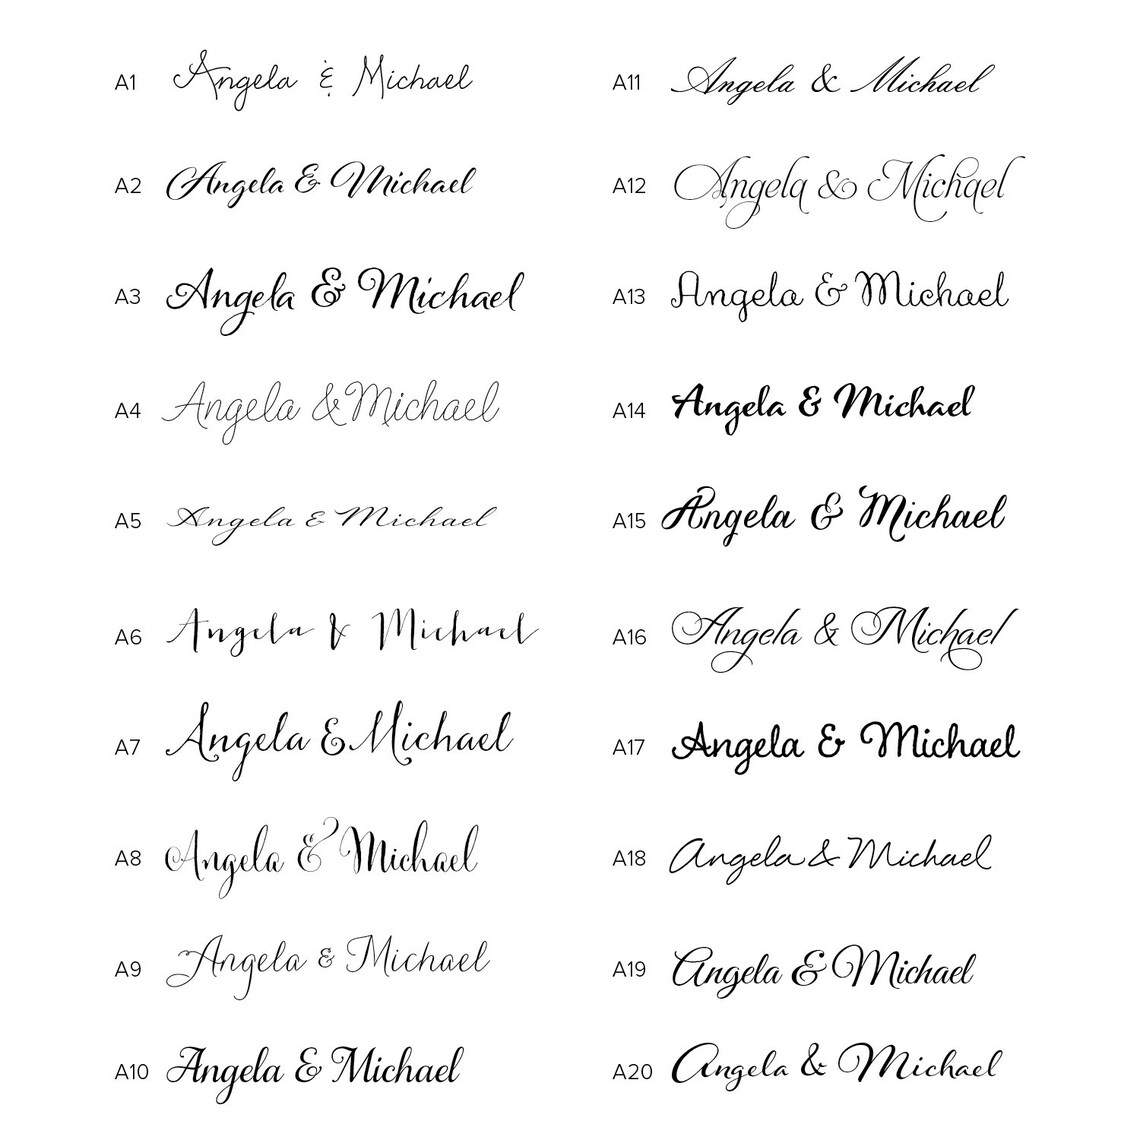 A1 Angela & Michael
A2 Angela & Michael
A3 Angela & Michael
A4 Angela & Michael
A5 Angela & Michael
A6 Angela & Michael
A7 Angela & Michael
A8 Angela & Michael
A9 Angela & Michael
A10 Angela & Michael
A11 Angela & Michael
A12 Angela & Michael
A13 Angela & Michael
A14 Angela & Michael
A15 Angela & Michael
A16 Angela & Michael
A17 Angela & Michael
A18 Angela & Michael
A19 Angela & Michael
A20 Angela & Michael